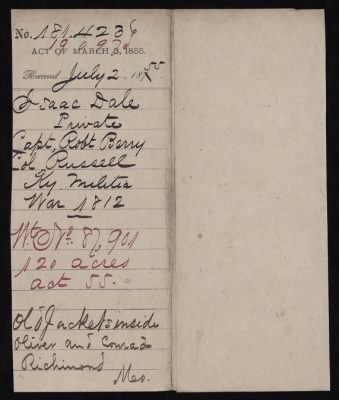 No. 181.423
ACT OF MARCH 3, 1855.
Received July 2, 1855
Isaac Dale
Private
Capt. Robt Berry
Col Russell
Ky. Militia
War 1812
Wt No. 87,901
120 acres
act 55.
Old Jackets inside
Oliver and Conrad
Richmond
Mo.